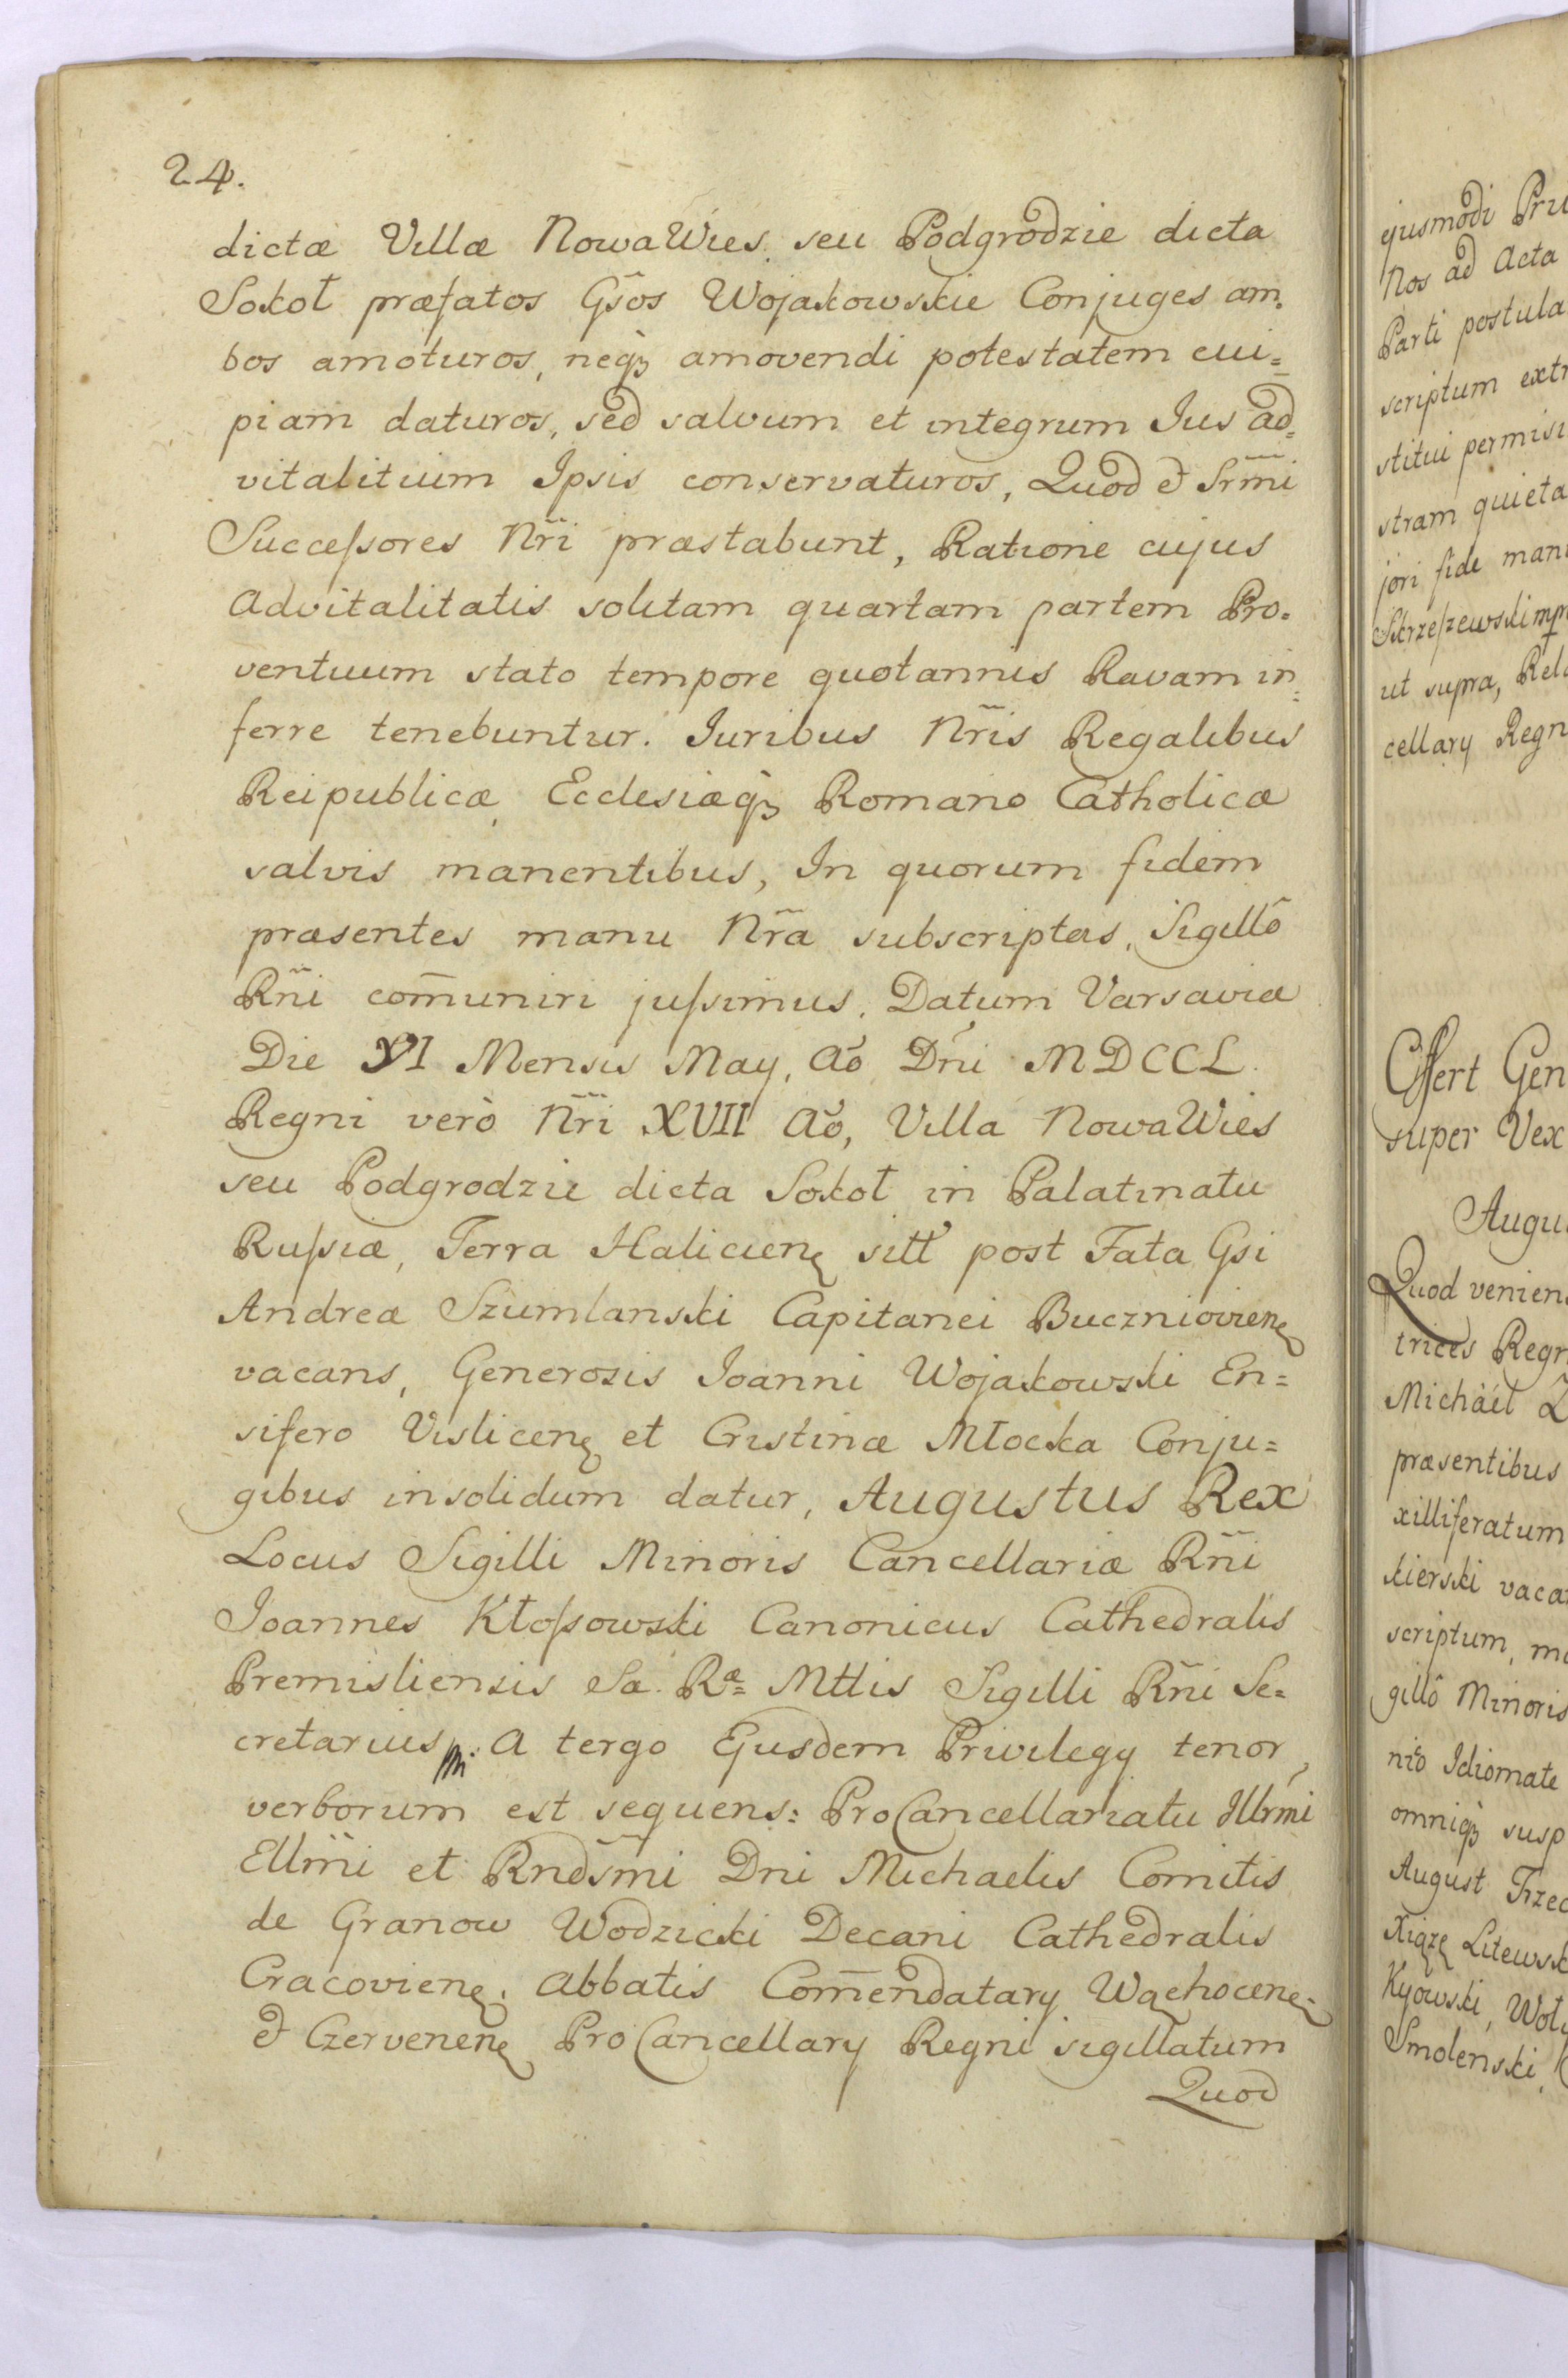 24.
dictæ Villæ Nowa Wies. seu Podgrodzie dicta
Sokoł præfatos Gs̃os Wojakowskie Conjuges am=
bos amoturos, neqꝫ amovendi potestatem cui=
piam daturos, sed salvum et integrum Jus ad=
vitalitium Ipsis conservaturos, Quod & Srm̃i
Succeſsores Nr̃i præstabunt, Ratione cujus
Advitalitatis solitam quartam partem Pro=
ventuum stato tempore quotannis Ravam in=
ferre tenebuntur. Juribus Nr̃is Regalibus
Reipublicæ, Ecclesiæqꝫ Romano Catholicæ
salvis manentibus, In quorum fidem
præsentes manu Nr̃a subscriptas, Sigillô
Rñi com̃uniri juſsimus. Datum Varsaviæ
Die XI Mensis May, Aõ Dñi MDCCL.
Regni verò Nr̃i XVII Aõ, Villa Nowa Wies
seu Podgrodzie dicta Sokoł in Palatinatu
Ruſsiæ, Terra Halicienę sitt̃ post Fata Gsi
Andreæ Szumlanski Capitanei Buczniovienę
vacans, Generosis Joanni Wojakowski En=
sifero Vislicenę et Cristinæ Młocka Conju=
gibus insolidum datur, Augustus Rex
Locus Sigilli Minoris Cancellariæ Rñi
Joannes Kłoſsowski Canonicus Cathedralis
Premisliensis Sæ. Ræ= Mttis Sigilli Rñi Se=
cretarius mp. A tergo Ejusdem Privilegy tenor,
verborum est sequens: ProCancellariatu Illrm̃i
Ellm̃i et Rndsm̃i Dni Michaelis Comitis
de Granow Wodzicki Decani Cathedralis
Cracovienę. Abbatis Com̃endatary Wąchocenę=
& Czervenenę ProCancellary Regni sigillatum
Quod
ejusmodi Pri
Nos ad Acta
Parti postula
scriptum extr
stitui permisi
stram quieta
jori fide man
Skrzeſzewski mp
ut supra, Rela
cellary Regn
Offert Gen
super Vex
Augu
Quod venien
trices Regn
Michaël
præsentibus
xilliferatum
kierski vaca
scriptum, m
gillô Minoris
nio Idiomate
omniqꝫ susp
August Trzec
Xiąze Litewsk
Kyowski, Woły
Smolenski,